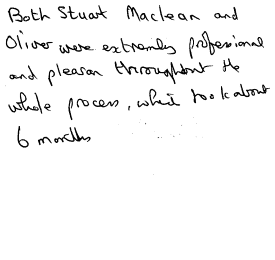 Both Stuart Maclean and
Oliver were extremely professional
and pleasan throughout the
whole process, which took about
6 months